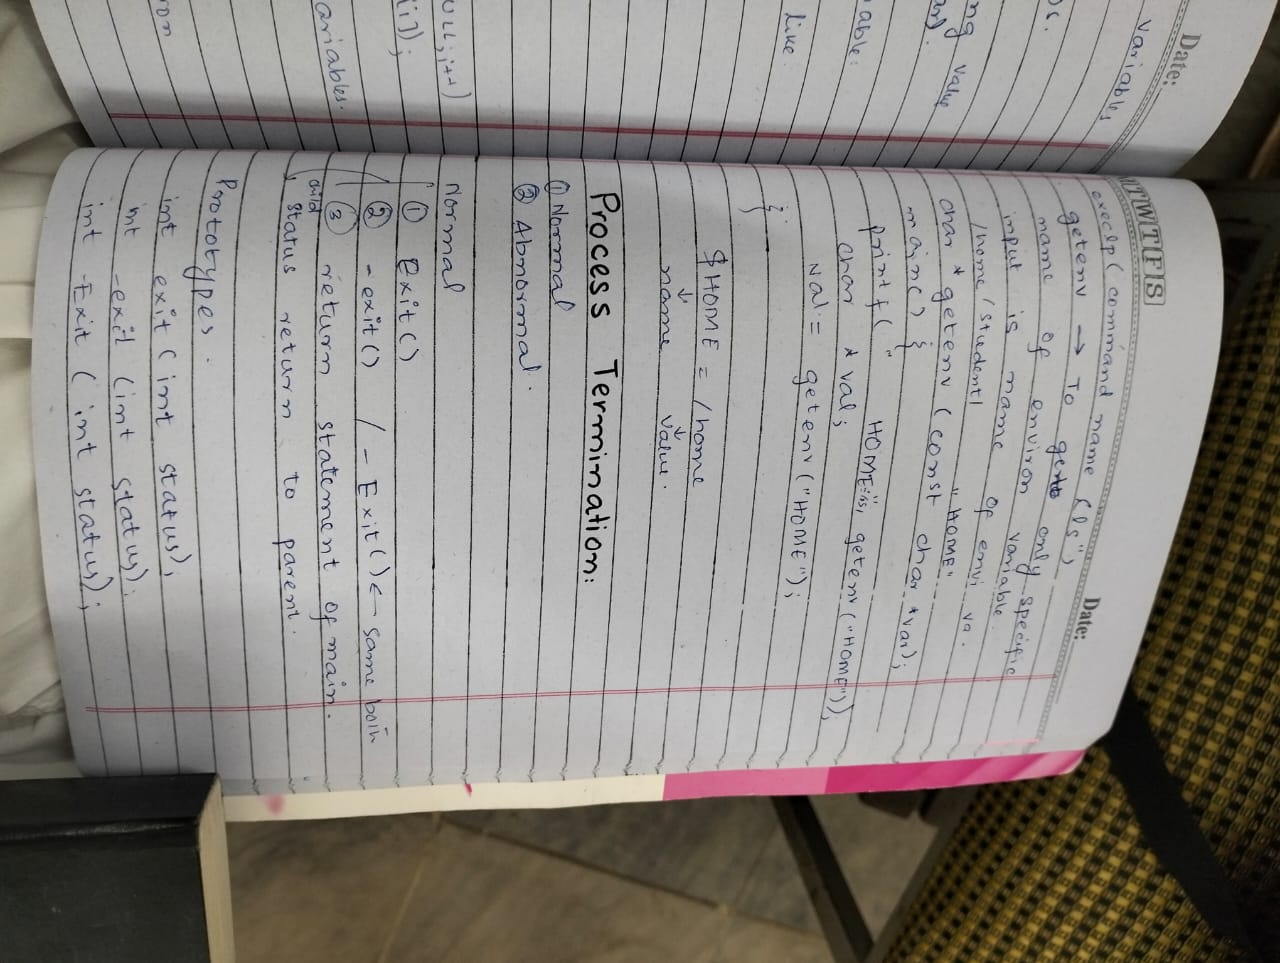 Date:
variables
ng value
able:
like
ULL; i++)
[i]);
ariables.
on
M T W T F S
Date:
execlp ( command name "ls",
getenv → To get only specific
name of environ variable.
input is name of envi va.
/home/student1 "HOME"
char * getenv ( const char *var);
main() {
printf(" HOME: , getenv ("HOME"));
char * val;
val = getenv ("HOME");
}
$HOME = /home
↓ ↓
name value.
Process Termination:
① Normal
② Abnormal.
Normal
① Exit()
② _exit() / _Exit() ← same both
③ return statement of main.
child
status return to parent.
Prototypes.
int exit (int status);
int _exit (int status);
int _Exit (int status);